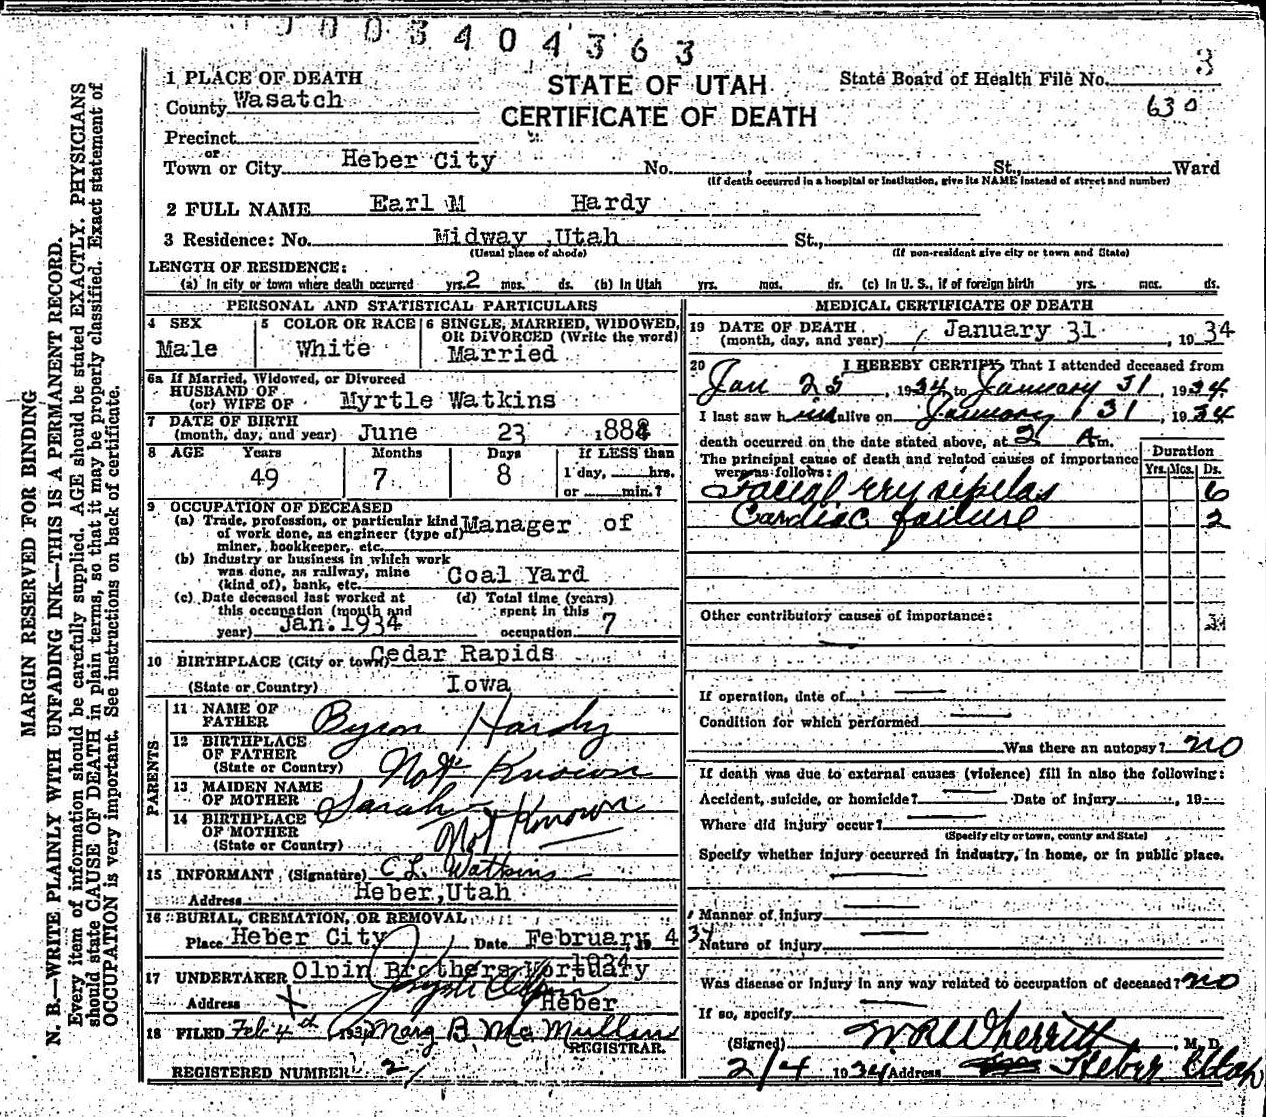 0003404363
3
1 PLACE OF DEATH
STATE OF UTAH
State Board of Health File No.
County Wasatch
CERTIFICATE OF DEATH
630
Precinct
or
Town or City Heber City No. St., Ward
(If death occurred in a hospital or institution, give its NAME instead of street and number)
2 FULL NAME Earl M Hardy
3 Residence: No. Midway ,Utah St.,
(Usual place of abode) (If non-resident give city or town and State)
LENGTH OF RESIDENCE:
(a) In city or town where death occurred yrs. 2 mos. ds. (b) In Utah yrs. mos. ds. (c) In U. S., if of foreign birth yrs. mos. ds.
PERSONAL AND STATISTICAL PARTICULARS
4 SEX
Male
5 COLOR OR RACE
White
6 SINGLE, MARRIED, WIDOWED,
OR DIVORCED (Write the word)
Married
6a If Married, Widowed, or Divorced
HUSBAND OF
(or) WIFE OF Myrtle Watkins
7 DATE OF BIRTH
(month, day, and year) June 23 1884
8 AGE Years Months Days If LESS than
49 7 8 1 day, hrs.
or min.?
9 OCCUPATION OF DECEASED
(a) Trade, profession, or particular kind
of work done, as engineer (type of) Manager of
miner, bookkeeper, etc.
(b) Industry or business in which work
was done, as railway, mine
(kind of), bank, etc. Coal Yard
(c) Date deceased last worked at
this occupation (month and
year) Jan. 1934
(d) Total time (years)
spent in this
occupation 7
10 BIRTHPLACE (City or town) Cedar Rapids
(State or Country) Iowa
PARENTS
11 NAME OF
FATHER Byron Hardy
12 BIRTHPLACE
OF FATHER
(State or Country) Not Known
13 MAIDEN NAME
OF MOTHER Sarah
14 BIRTHPLACE
OF MOTHER
(State or Country) Not Known
15 INFORMANT (Signature) C.L. Watkins
Address Heber,Utah
16 BURIAL, CREMATION, OR REMOVAL
Place Heber City Date February 4
1934
17 UNDERTAKER Olpin Brothers Mortuary
Address Heber
18 FILED Feb 4th 1934 Marg B McMullin
REGISTRAR.
REGISTERED NUMBER 2
MEDICAL CERTIFICATE OF DEATH
19 DATE OF DEATH
(month, day, and year) January 31 , 1934
20 I HEREBY CERTIFY That I attended deceased from
Jan 25, 1934 to January 31, 1934
I last saw him alive on January 31, 1934
death occurred on the date stated above, at 2 A m.
The principal cause of death and related causes of importance
were as follows:
Duration
Yrs. Mos. Ds.
Facial erysipelas 6
Cardiac failure 2
Other contributory causes of importance:
If operation, date of
Condition for which performed
Was there an autopsy? no
If death was due to external causes (violence) fill in also the following:
Accident, suicide, or homicide? Date of injury , 19
Where did injury occur?
(Specify city or town, county and State)
Specify whether injury occurred in industry, in home, or in public place.
Manner of injury
34
Nature of injury
Was disease or injury in any way related to occupation of deceased? no
If so, specify
(Signed) W R Wherritt, M. D.
2/4 1934 Address Heber Utah
MARGIN RESERVED FOR BINDING
N. B.—WRITE PLAINLY WITH UNFADING INK—THIS IS A PERMANENT RECORD.
Every item of information should be carefully supplied. AGE should be stated EXACTLY. PHYSICIANS
should state CAUSE OF DEATH in plain terms, so that it may be properly classified. Exact statement of
OCCUPATION is very important. See instructions on back of certificate.